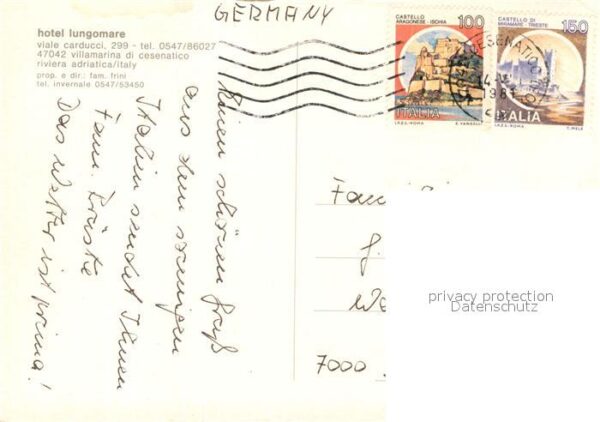 GERMANY
hotel lungomare
viale carducci, 299 - tel. 0547/86027
47042 villamarina di cesenatico
riviera adriatica/italy
prop. e dir.: fam. frini
tel. invernale 0547/53450
CASTELLO
ARAGONESE - ISCHIA
100
ITALIA
I.P.Z.S. - ROMA
E. VANGELLI
CASTELLO DI
MIRAMARE - TRIESTE
150
ITALIA
I.P.Z.S. - ROMA
T. MELE
CESENATICO
14
198
Einen schönen Gruß
aus dem sonnigen
Italien sendet Ihnen
Fam.
Das Wetter ist prima!
Fam
J.
We
7000
privacy protection
Datenschutz